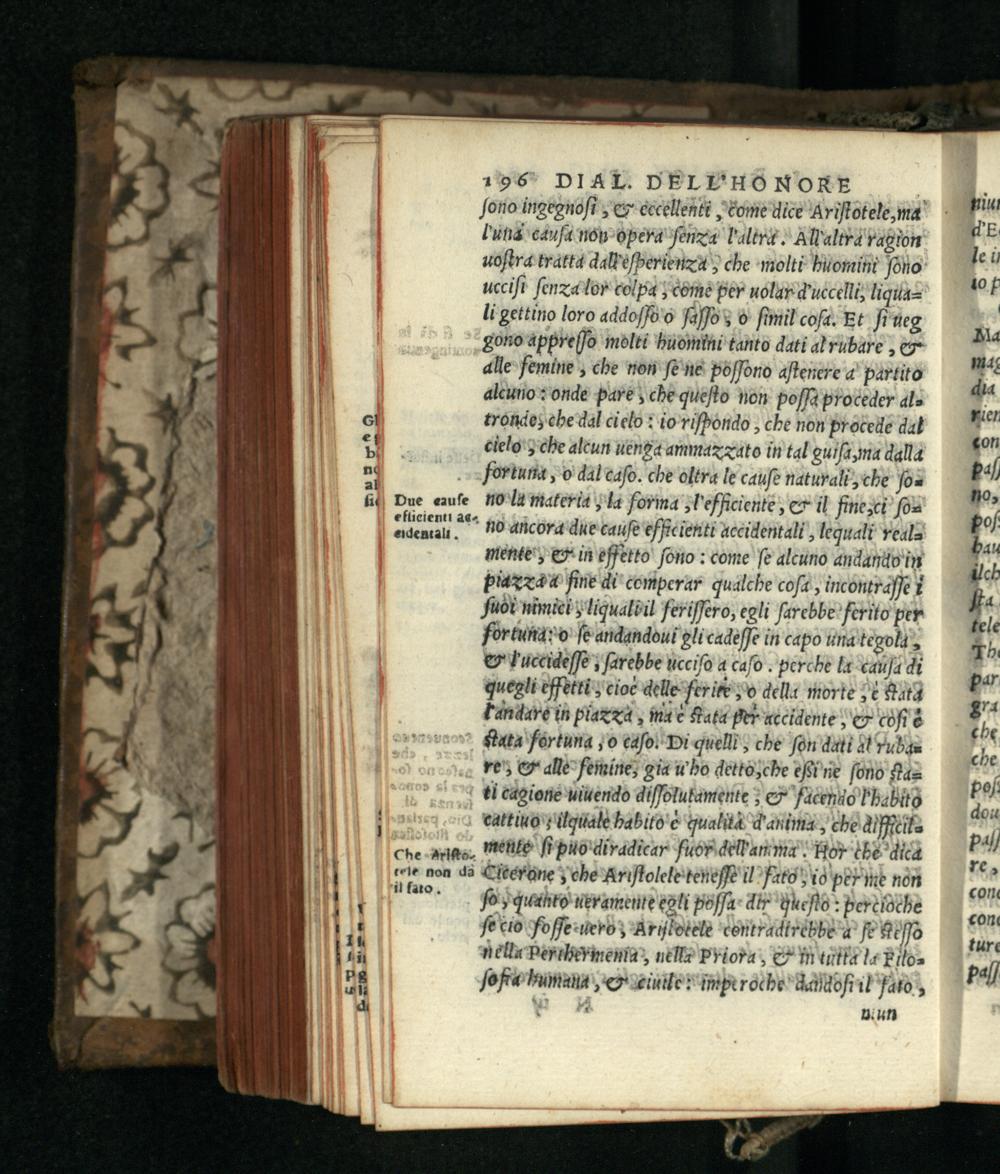 196 DIAL. DELL'HONORE
sono ingegnosi, & eccellenti, come dice Aristotele,ma
l'una causa non opera senza l'altra. All'altra ragion
uostra tratta dall'esperienza, che molti huomini sono
uccisi senza lor colpa, come per uolar d'uccelli, liqua=
li gettino loro addosso o sasso, o simil cosa. Et si ueg
gono appresso molti huomini tanto dati al rubare, &
alle femine, che non se ne possono astenere a partito
alcuno: onde pare, che questo non possa proceder al=
tronde, che dal cielo: io rispondo, che non procede dal
cielo, che alcun uenga ammazzato in tal guisa,ma dalla
fortuna, o dal caso. che oltra le cause naturali, che so=
no la materia, la forma, l'efficiente, & il fine,ci so=
no ancora due cause efficienti accidentali, lequali real=
mente, & in effetto sono: come se alcuno andando in
piazza a fine di comperar qualche cosa, incontrasse i
suoi nimici, liquali il ferissero, egli sarebbe ferito per
fortuna: o se andandoui gli cadesse in capo una tegola,
& l'uccidesse, sarebbe ucciso a caso. perche la causa di
quegli effetti, cioè delle ferite, o della morte, è stata
l'andare in piazza, ma è stata per accidente, & cosi è
stata fortuna, o caso. Di quelli, che son dati al ruba=
re, & alle femine, gia u'ho detto,che essi ne sono sta=
ti cagione uiuendo dissolutamente, & facendo l'habito
cattiuo; ilquale habito è qualità d'anima, che difficil=
mente si puo diradicar fuor dell'anima. Hor che dica
Cicerone, che Aristotele tenesse il fato, io per me non
so, quanto ueramente egli possa dir questo: percioche
se cio fosse uero, Aristotele contradirebbe a se stesso
nella Perihermenia, nella Priora, & in tutta la Filo=
sofia humana, & ciuile: imperoche dandosi il fato,
niun
Due cause
efficienti ac-
cidentali.
Che Aristo-
tele non dà
il fato.